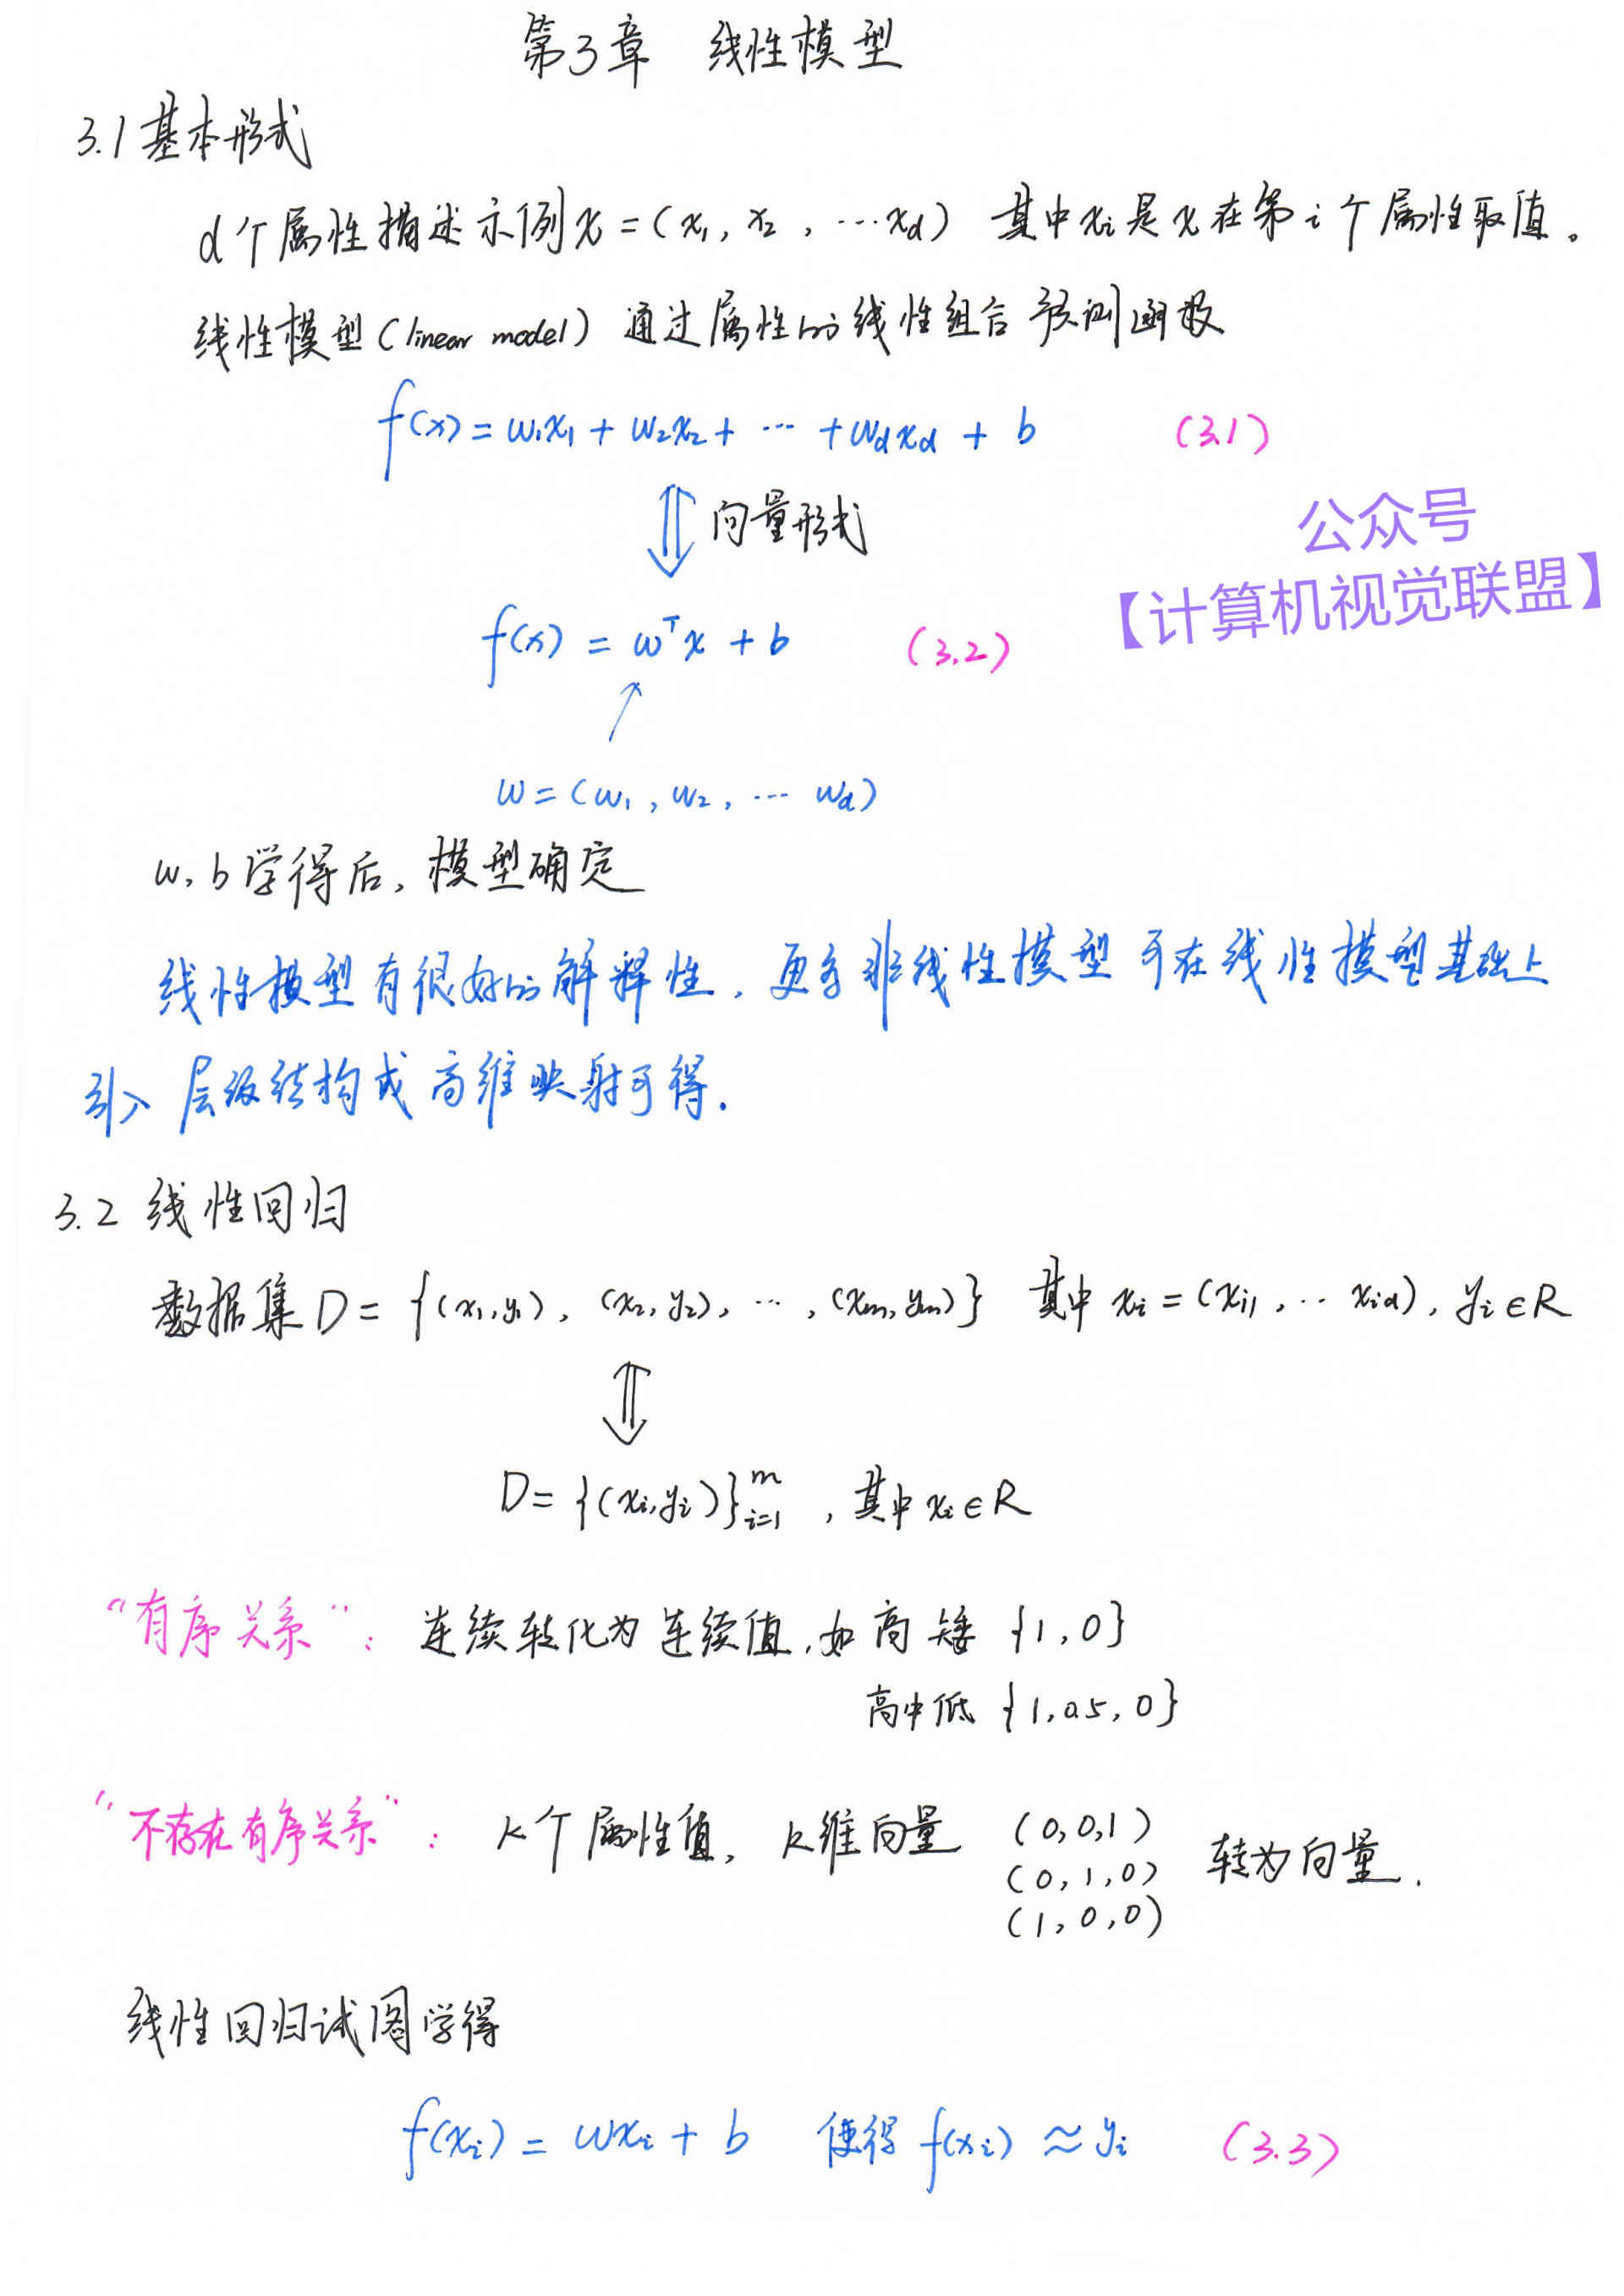 第3章 线性模型
3.1 基本形式
d个属性描述示例x=(x₁, x₂, …x_d) 其中xᵢ是x在第i个属性取值。
线性模型(linear model) 通过属性的线性组合预测函数
f(x) = w₁x₁ + w₂x₂ + … + w_d x_d + b (3.1)
⇕ 向量形式
公众号
f(x) = wᵀx + b (3.2)
【计算机视觉联盟】
w = (w₁, w₂, … w_d)
w, b学得后, 模型确定
线性模型有很好的解释性, 更多非线性模型可在线性模型基础上
引入层级结构或高维映射可得.
3.2 线性回归
数据集D = {(x₁,y₁), (x₂,y₂), …, (xₘ,yₘ)} 其中xᵢ = (xᵢ₁, … x_id), yᵢ∈R
⇕
D = {(xᵢ,yᵢ)}ᵐᵢ₌₁, 其中xᵢ∈R
“有序关系”: 连续转化为连续值, 如高矮 {1, 0}
高中低 {1, 0.5, 0}
“不存在有序关系”: k个属性值, k维向量 (0,0,1) 转为向量.
(0,1,0)
(1,0,0)
线性回归试图学得
f(xᵢ) = wxᵢ + b 使得 f(xᵢ) ≈ yᵢ (3.3)